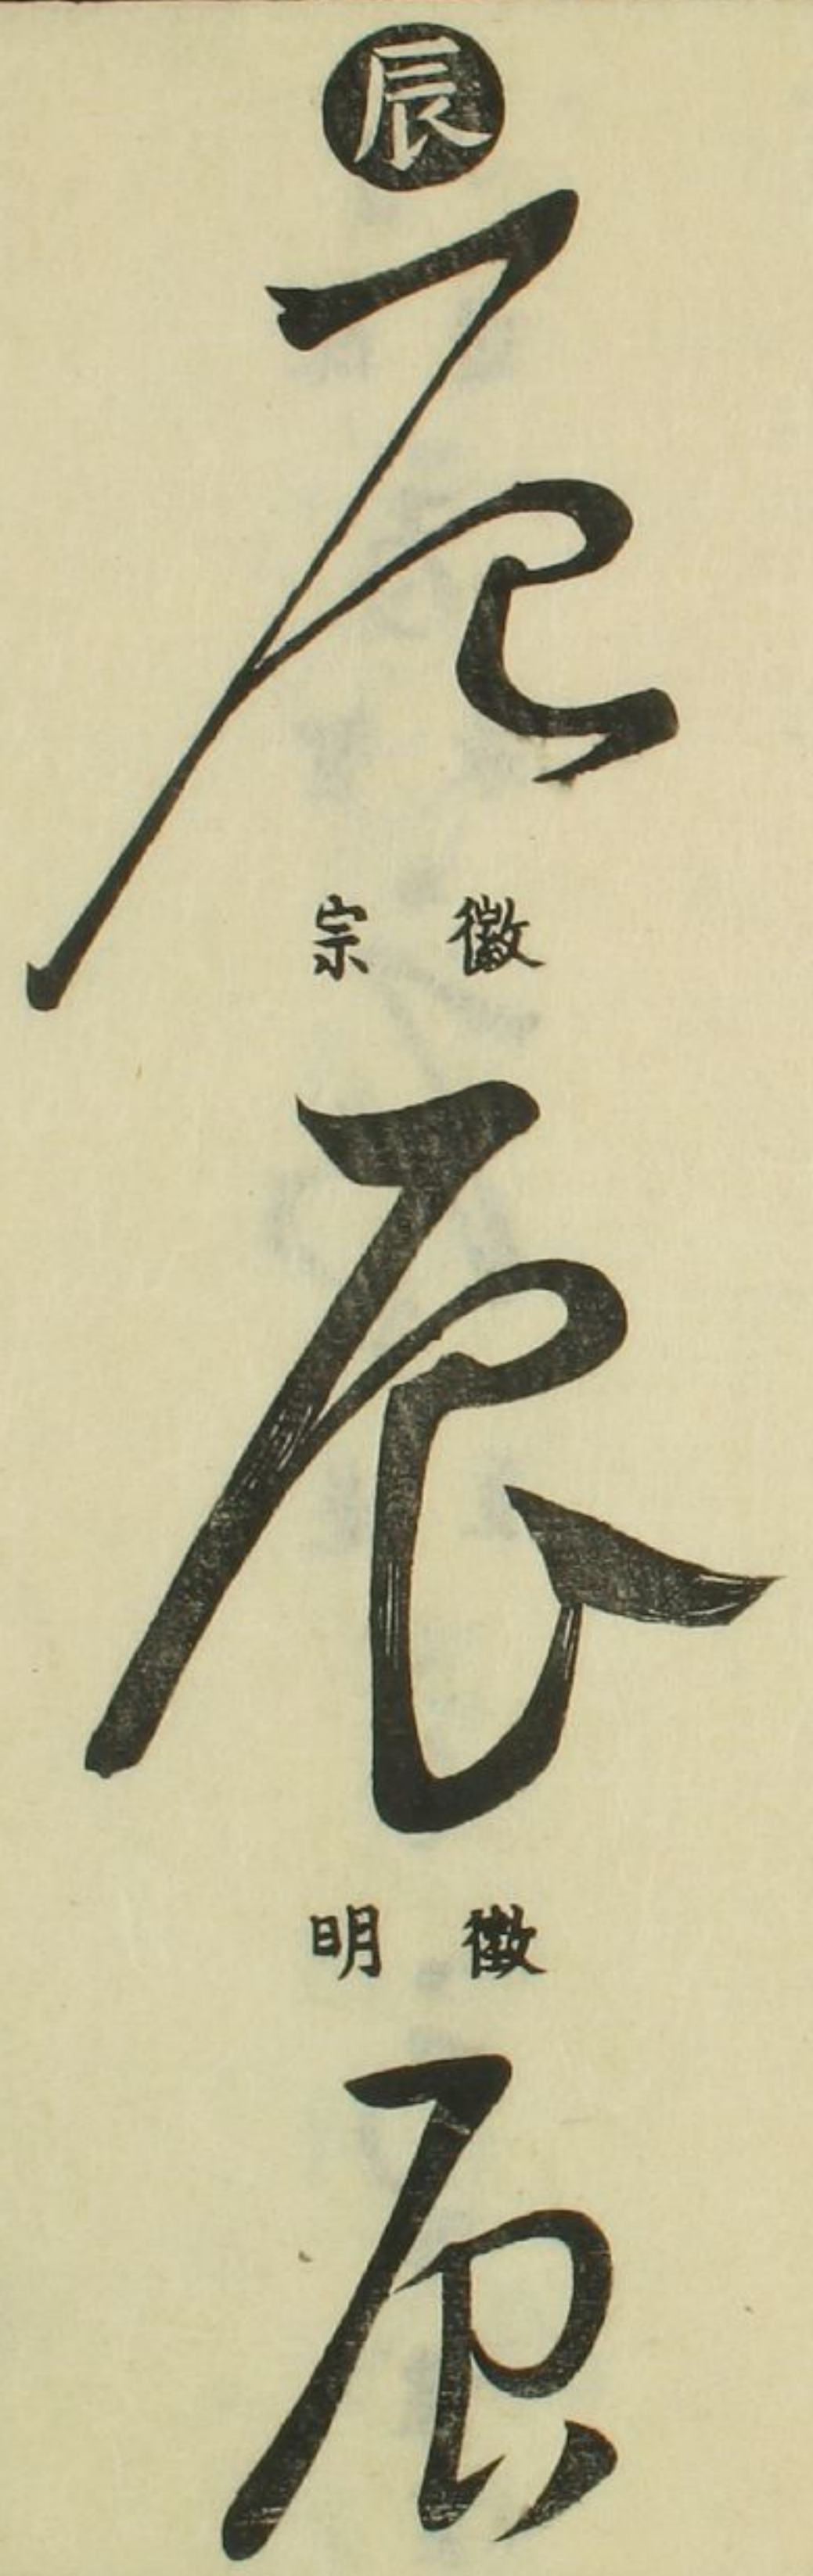 辰
辰
徽宗
辰
徵明
辰